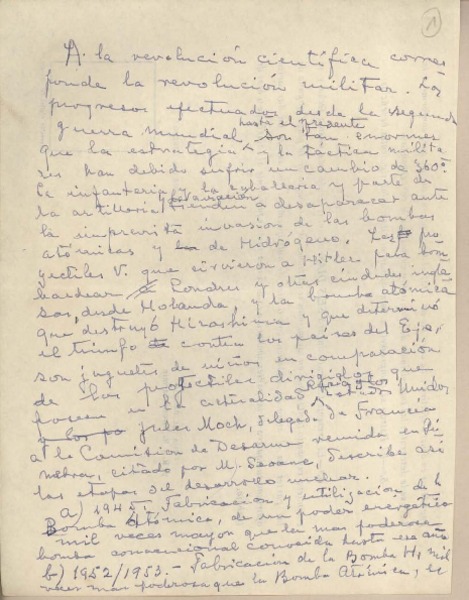 1
A la revolución científica corres
ponde la revolución militar. Los
progresos efectuados desde la segunda
guerra mundial hasta el presente son tan enormes
que la estrategia y la táctica milita
res han debido sufrir un cambio de 360°.
La infantería y la caballería y parte de
la artillería tienden a desaparacer ante
la imprevista invasión de las bombas
atómicas y de Hidrógeno. Los pro
yectiles V. que sirvieron a Hitler para bom
bardear Londres y otras ciudades ingle
sas, desde Holanda, y la bomba atómica
que destruyó Hiroshima y que determinó
el triunfo contra los países del Eje,
son juguetes de niños en comparación
de los proyectiles dirigidos que
poseen en la actualidad Estados Unidos
Jules Moch, delegado de Francia
a la Comisión de Desarme reunida en Gi
nebra, citado por M. Seoane, describe así
las etapas del desarrollo nuclear.
a) 1945: Fabricación y utilización de la
Bomba Atómica, de un poder energético
mil veces mayor que la mas poderosa
bomba convencional conocida hasta ese año
b) 1952/1953 - Fabricación de la Bomba H, mil
veces mas poderosa que la Bomba Atómica,